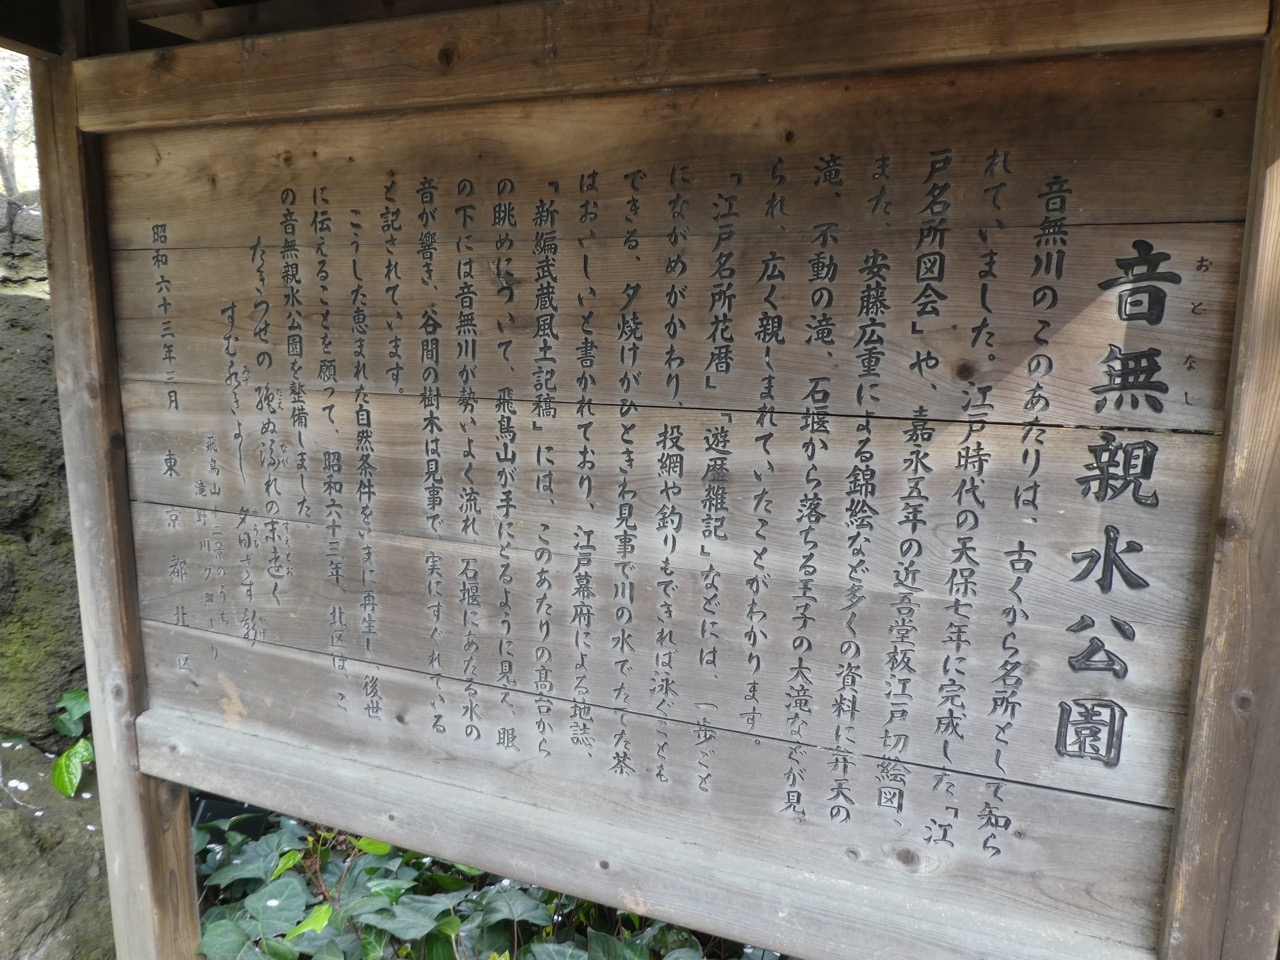 音無親水公園
おとなし
音無川のこのあたりは、古くから名所として知ら
れていました。江戸時代の天保七年に完成した「江
戸名所図会」や、嘉永五年の近吾堂板江戸切絵図、
また、安藤広重による錦絵など多くの資料に弁天の
滝、不動の滝、石堰から落ちる王子の大滝などが見
られ、広く親しまれていたことがわかります。
「江戸名所花暦」「遊歴雑記」などには、一歩ごと
にながめがかわり、投網や釣りもできれば泳ぐことも
できる、夕焼けがひときわ見事で川の水でたてた茶
はおいしいと書かれており、江戸幕府による地誌、
「新編武蔵風土記稿」には、このあたりの高台から
の眺めについて、飛鳥山が手にとるように見え、眼
の下には音無川が勢いよく流れ、石堰にあたる水の
音が響き、谷間の樹木は見事で、実にすぐれている
と記されています。
こうした恵まれた自然条件をいまに再生し、後世
に伝えることを願って、昭和六十三年、北区は、こ
の音無親水公園を整備しました。
たきつせの絶ぬ流れの末遠く
たえ なが すえとお
すむ水きよし 夕日さす影
みず ゆうひ かげ
飛鳥山十二景のうち
滝野川夕照より
昭和六十三年三月 東京都北区